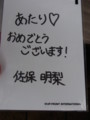 あたり♡
おめでとう
ございます!
佐保 明梨